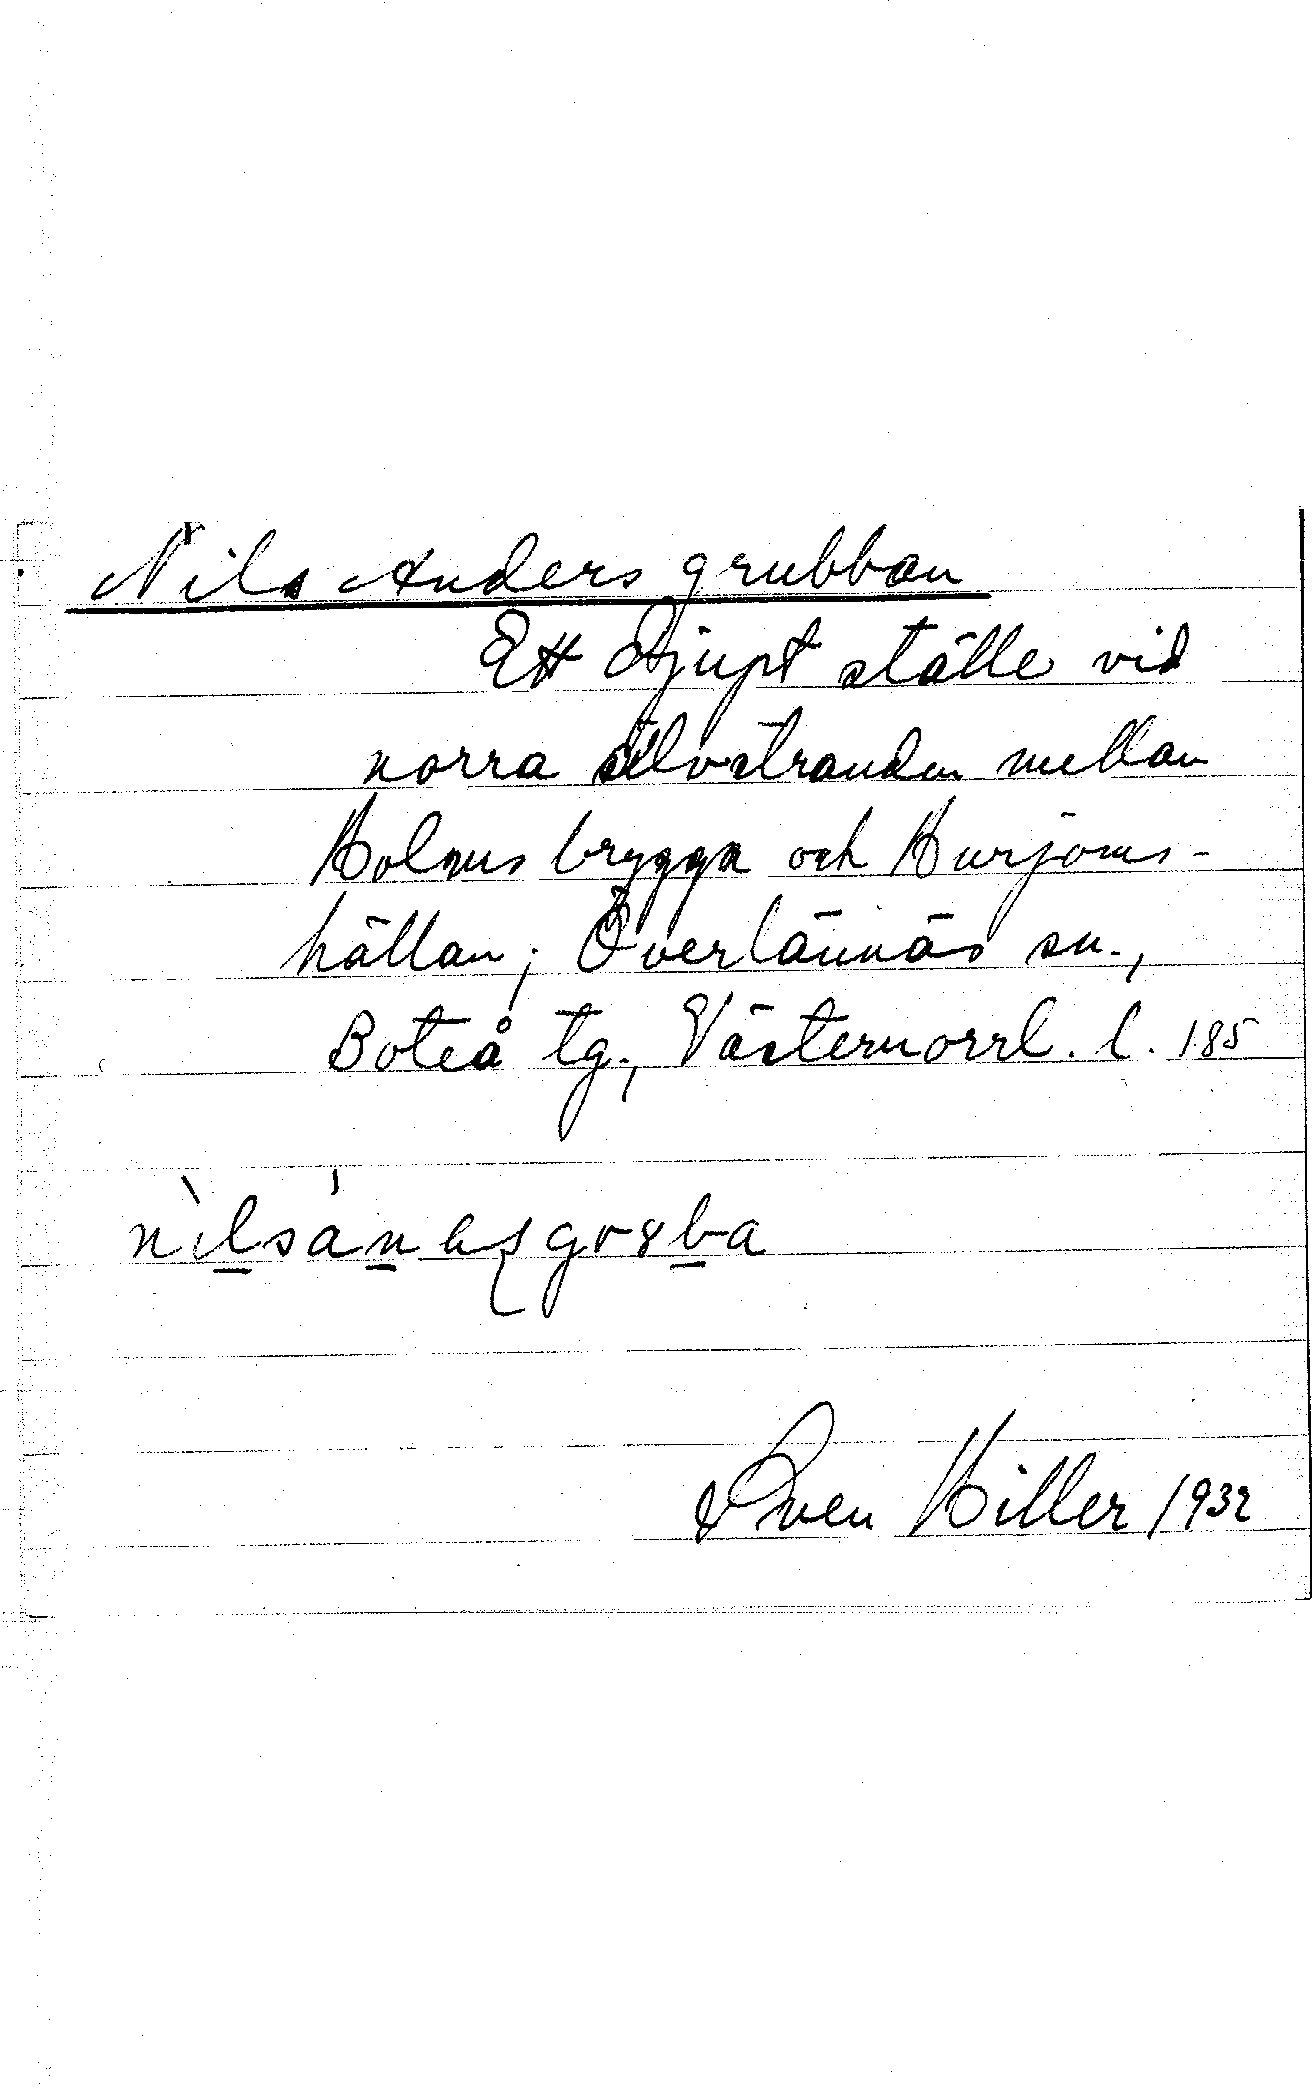 Nils Anders grubban
Ett djupt ställe vid
norra älvstranden mellan
Holms brygga och Hurjoms-
hällan; Överlännäs sn.,
Boteå tg., Västernorrl. l. 185
Sven Hiller 1932